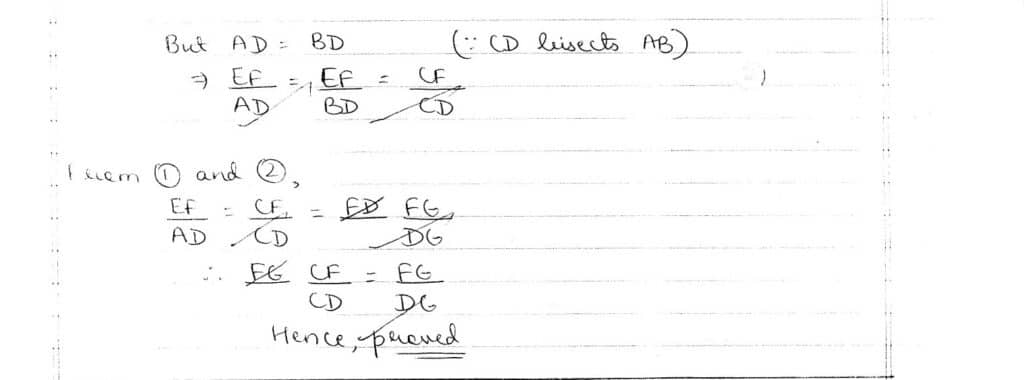 But AD = BD (∵ CD bisects AB)
⇒ EF/AD = EF/BD = CF/CD
From ① and ②,
EF/AD = CF/CD = FG/DG
∴ CF/CD = FG/DG
Hence, proved